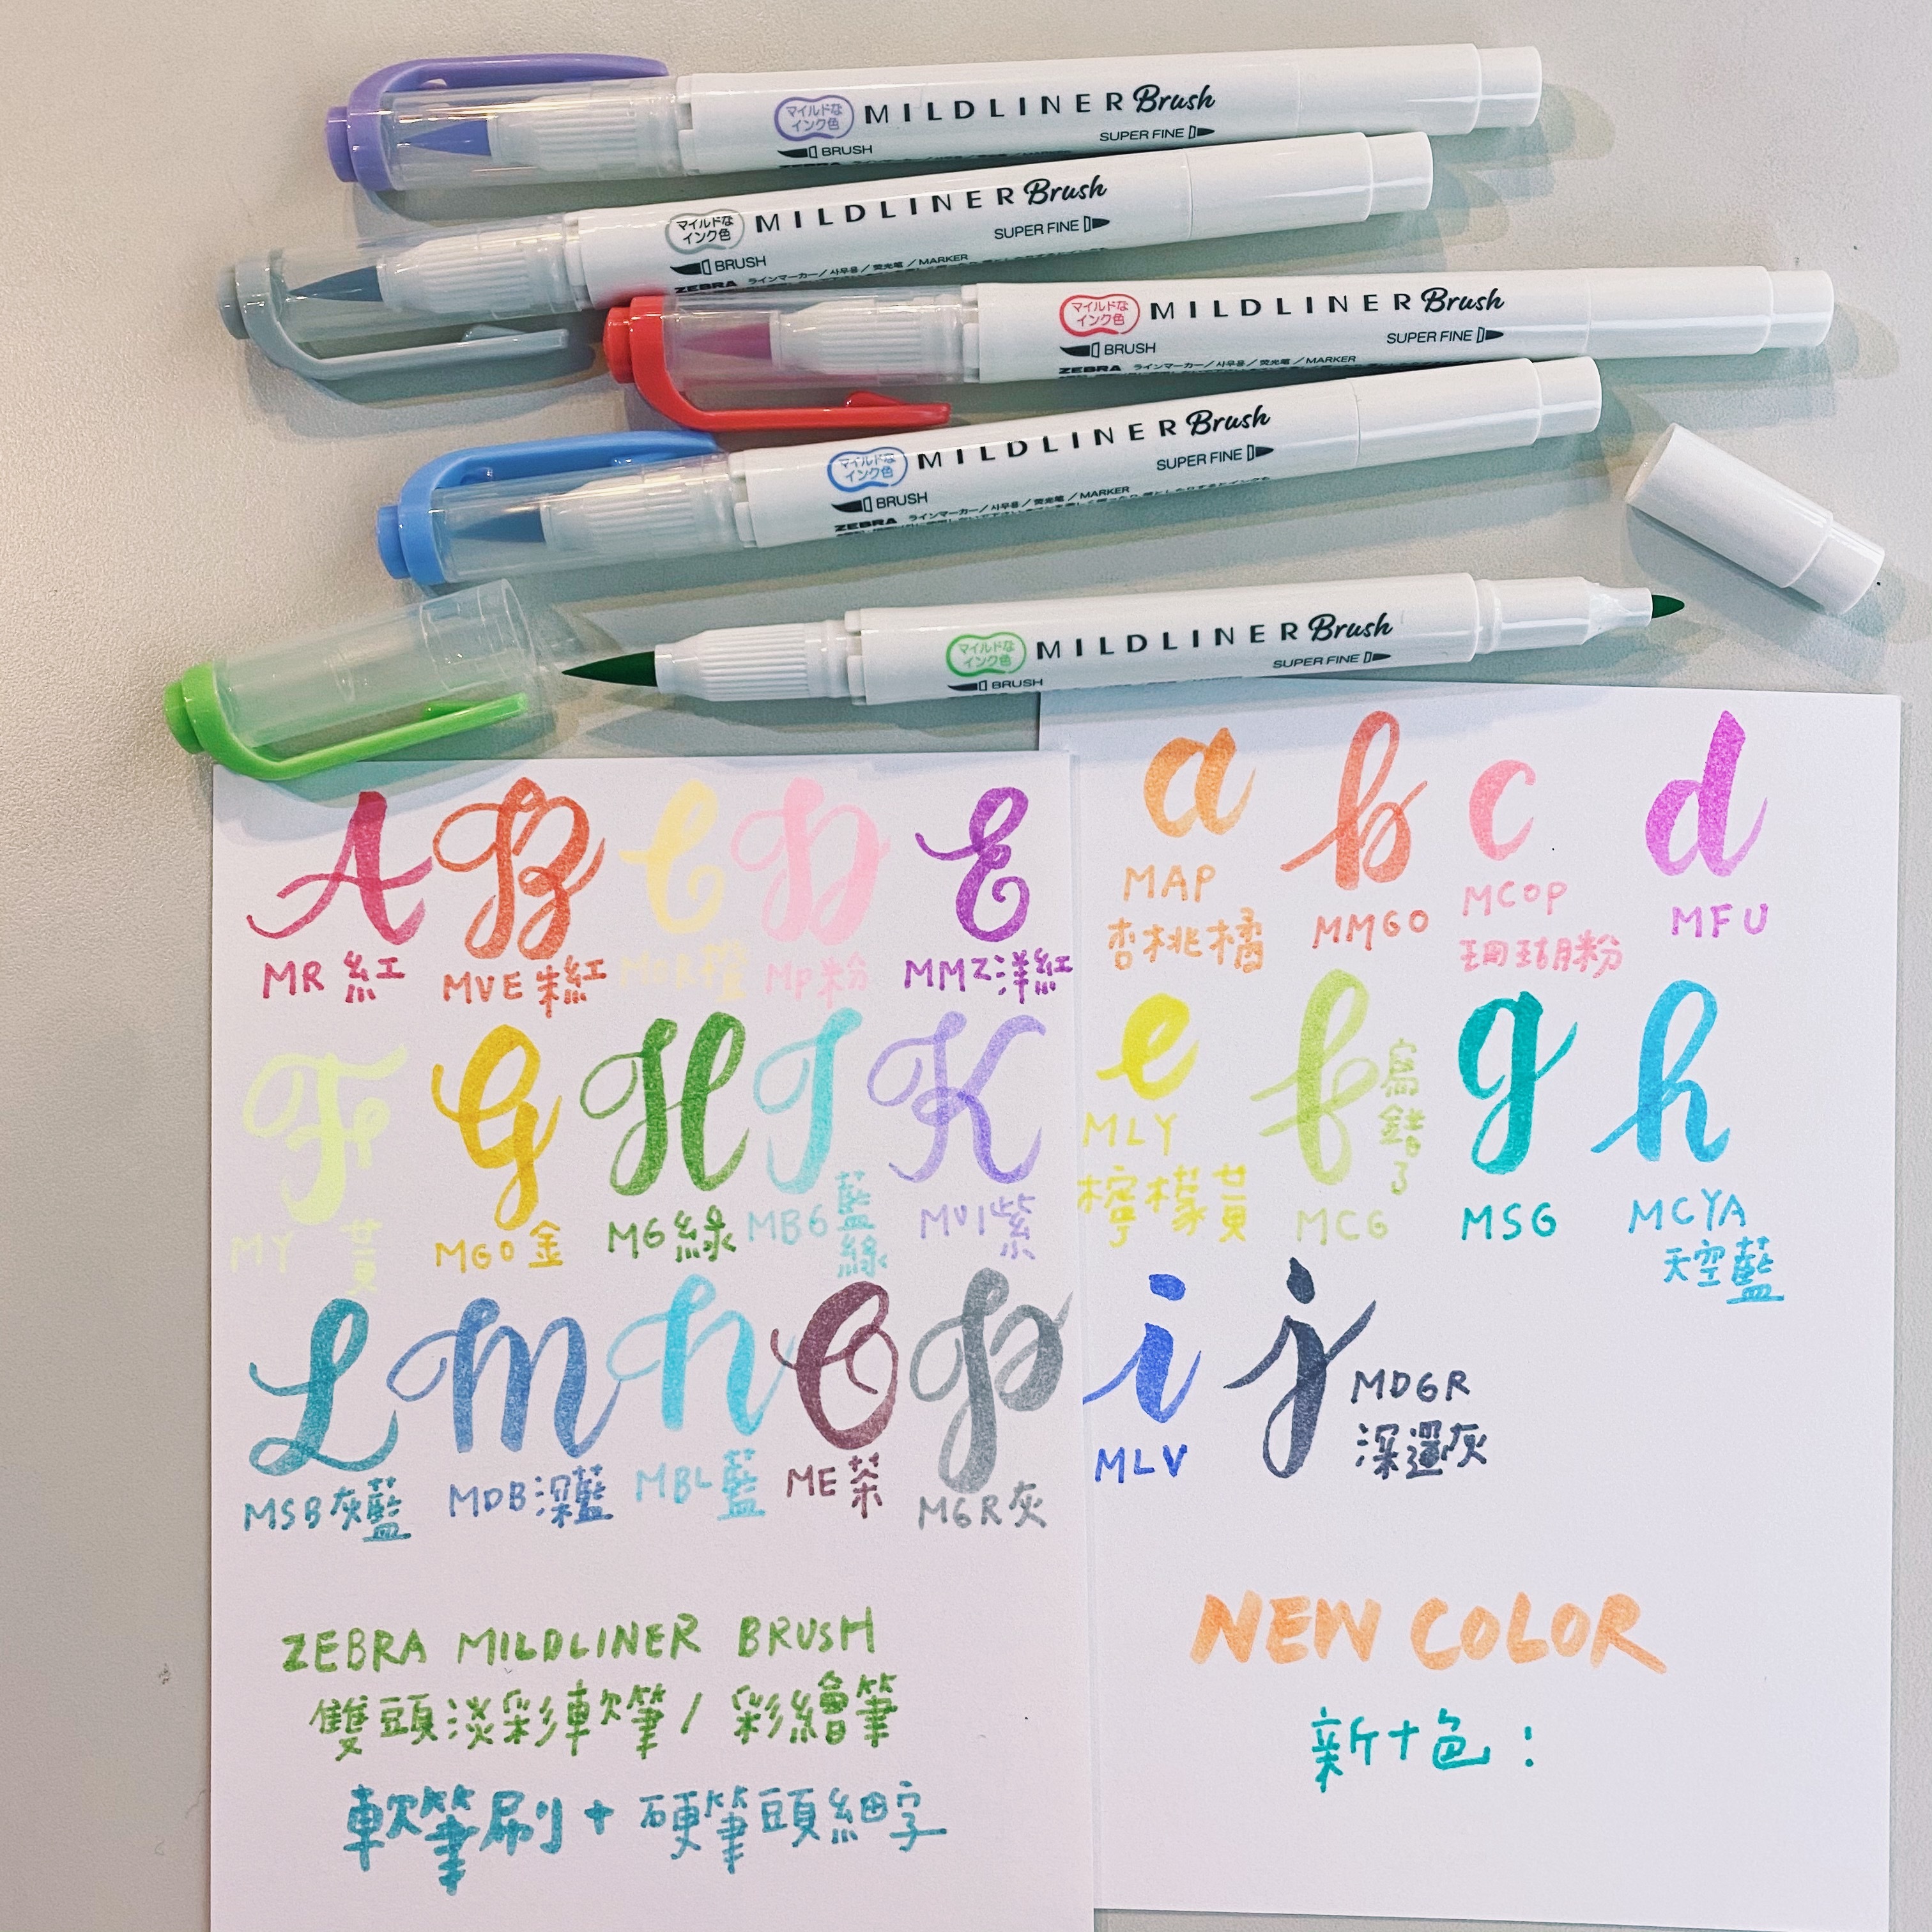 マイルドな
インク色
MILDLINER Brush
BRUSH
SUPER FINE
マイルドな
インク色
MILDLINER Brush
BRUSH
SUPER FINE
ZEBRA ラインマーカー／사무용／荧光笔／MARKER
マイルドな
インク色
MILDLINER Brush
BRUSH
SUPER FINE
ZEBRA ラインマーカー／사무용／荧光笔／MARKER
マイルドな
インク色
MILDLINER Brush
BRUSH
SUPER FINE
ZEBRA ラインマーカー／사무용／荧光笔／MARKER
マイルドな
インク色
MILDLINER Brush
BRUSH
SUPER FINE
A B C D E
MR 紅 MVE 朱紅 MOR橙 MP粉 MMZ洋紅
F G H I K
MY 黃 MGO 金 MG 綠 MBG 藍綠 MVI紫
L M n O P
MSB灰藍 MDB深藍 MBL藍 ME茶 MGR灰
ZEBRA MILDLINER BRUSH
雙頭淡彩軟筆/彩繪筆
軟筆刷+硬筆頭細字
a b c d
MAP MMGO MCOP MFU
杏桃橘 珊瑚粉
e f 寫錯了 g h
MLY MCG MSG MCYA
檸檬黃 天空藍
i j
MLV MDGR
深暹灰
NEW COLOR
新十色：